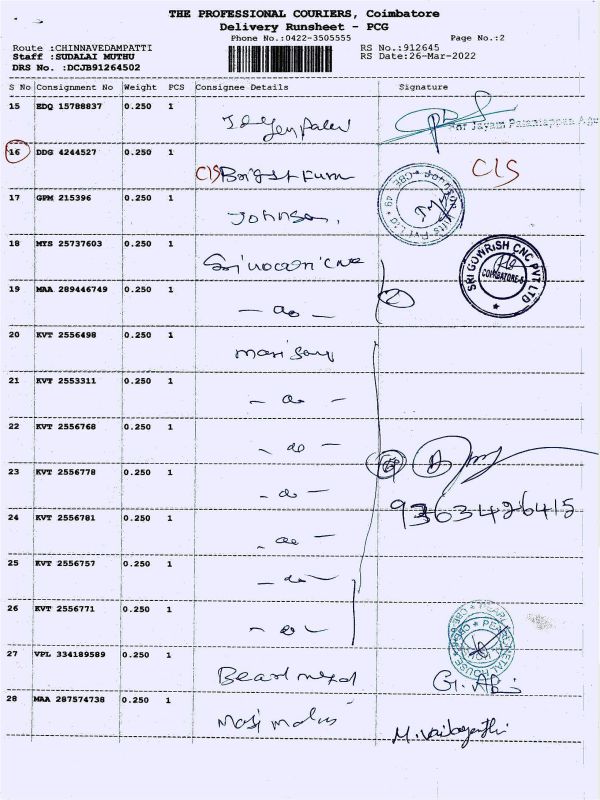 THE PROFESSIONAL COURIERS, Coimbatore
Delivery Runsheet - PCG
Phone No.:0422-3505555
Page No.:2
Route :CHINNAVEDAMPATTI
RS No.:912645
Staff :SUDALAI MUTHU
RS Date:26-Mar-2022
DRS No. :DCJB91264502
S No Consignment No Weight PCS Consignee Details Signature
15 EDQ 15788837 0.250 1
Sri Jayam Palaniappan Agu
16 DDG 4244527 0.250 1
CIS CIS
17 GPM 215396 0.250 1
Johnson
18 MYS 25737603 0.250 1
SRI GOWRISH CNC PVT LTD
COIMBATORE-6
19 MAA 289446749 0.250 1
- do -
20 KVT 2556498 0.250 1
21 KVT 2553311 0.250 1
- do -
22 KVT 2556768 0.250 1
- do -
23 KVT 2556778 0.250 1
- do -
9363426415
24 KVT 2556781 0.250 1
- do -
25 KVT 2556757 0.250 1
- do -
26 KVT 2556771 0.250 1
- do -
27 VPL 334189589 0.250 1
28 MAA 287574738 0.250 1